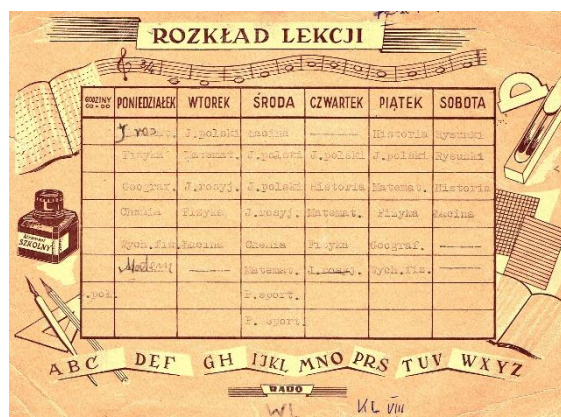 ROZKŁAD LEKCJI
GODZINY OD - DO PONIEDZIAŁEK WTOREK ŚRODA CZWARTEK PIĄTEK SOBOTA
J. ros J.polski Łacina ——— Historia Rysunki
Fizyka Matemat. J.polski J.polski J.polski Rysunki
Geograf. J.rosyj. J.polski Historia Matemat. Historia
Chemia Fizyka J.rosyj. Matemat. Fizyka Łacina
Wych.fiz. Łacina Chemia Fizyka Geograf. ———
Matem ——— Matemat. J.rosyj. Wych.fiz.
P.sport.
P. sport
SZKOLNY
ABC DEF GH IJKL MNO PRS TUV WXYZ
RADO
WL KL VIII